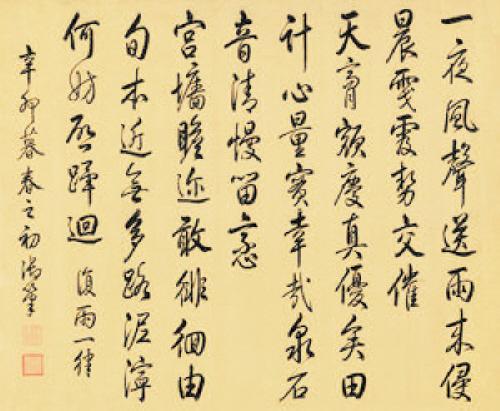 一夜風聲送雨來侵
晨勢交催
天膏額慶真優矣田
計心量實幸哉泉石
音清慢留意
宮墻瞻邇敢徘徊由
旬本近無多路泥濘
何妨啟蹕迴 復雨一律
辛卯暮春之初御筆